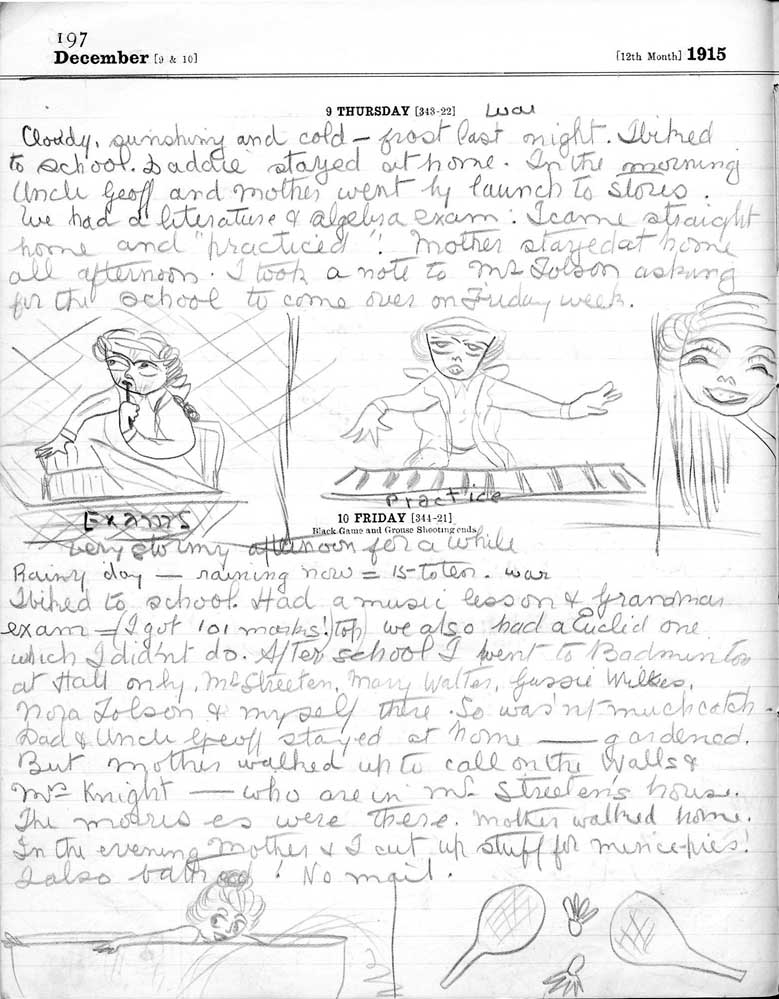 197
December [9 & 10]
[12th Month] 1915
9 THURSDAY [343-22] War
Cloudy, sunshiny and cold — frost last night. I biked
to school. Daddie stayed at home. In the morning
Uncle Geoff and mother went by launch to stores.
We had a literature & algebra exam. I came straight
home and "practiced"! Mother stayed at home
all afternoon. I took a note to Mr Tolson asking
for the school to come over on Friday week.
Exams
Practice
10 FRIDAY [344-21]
Black Game and Grouse Shooting ends
very stormy afternoon for a while
Rainy day — raining now = 15 to ten. war
I biked to school. Had a music lesson & grammar
exam = (I got 101 marks! top) we also had a Euclid one
which I did'nt do. After school I went to Badminton
at Hall only, Mr Streeten, Mary Walter, Gussie Wilkes,
Nora Tolson & myself there. So was'nt much catch.
Dad & Uncle Geoff stayed at home — gardened.
But mother walked up to call on the Walls &
Mrs Knight — who are in Mr Streeten's house.
The morris es were there. Mother walked home.
In the evening Mother & I cut up stuff for mince-pies!
I also bathed! No mail.